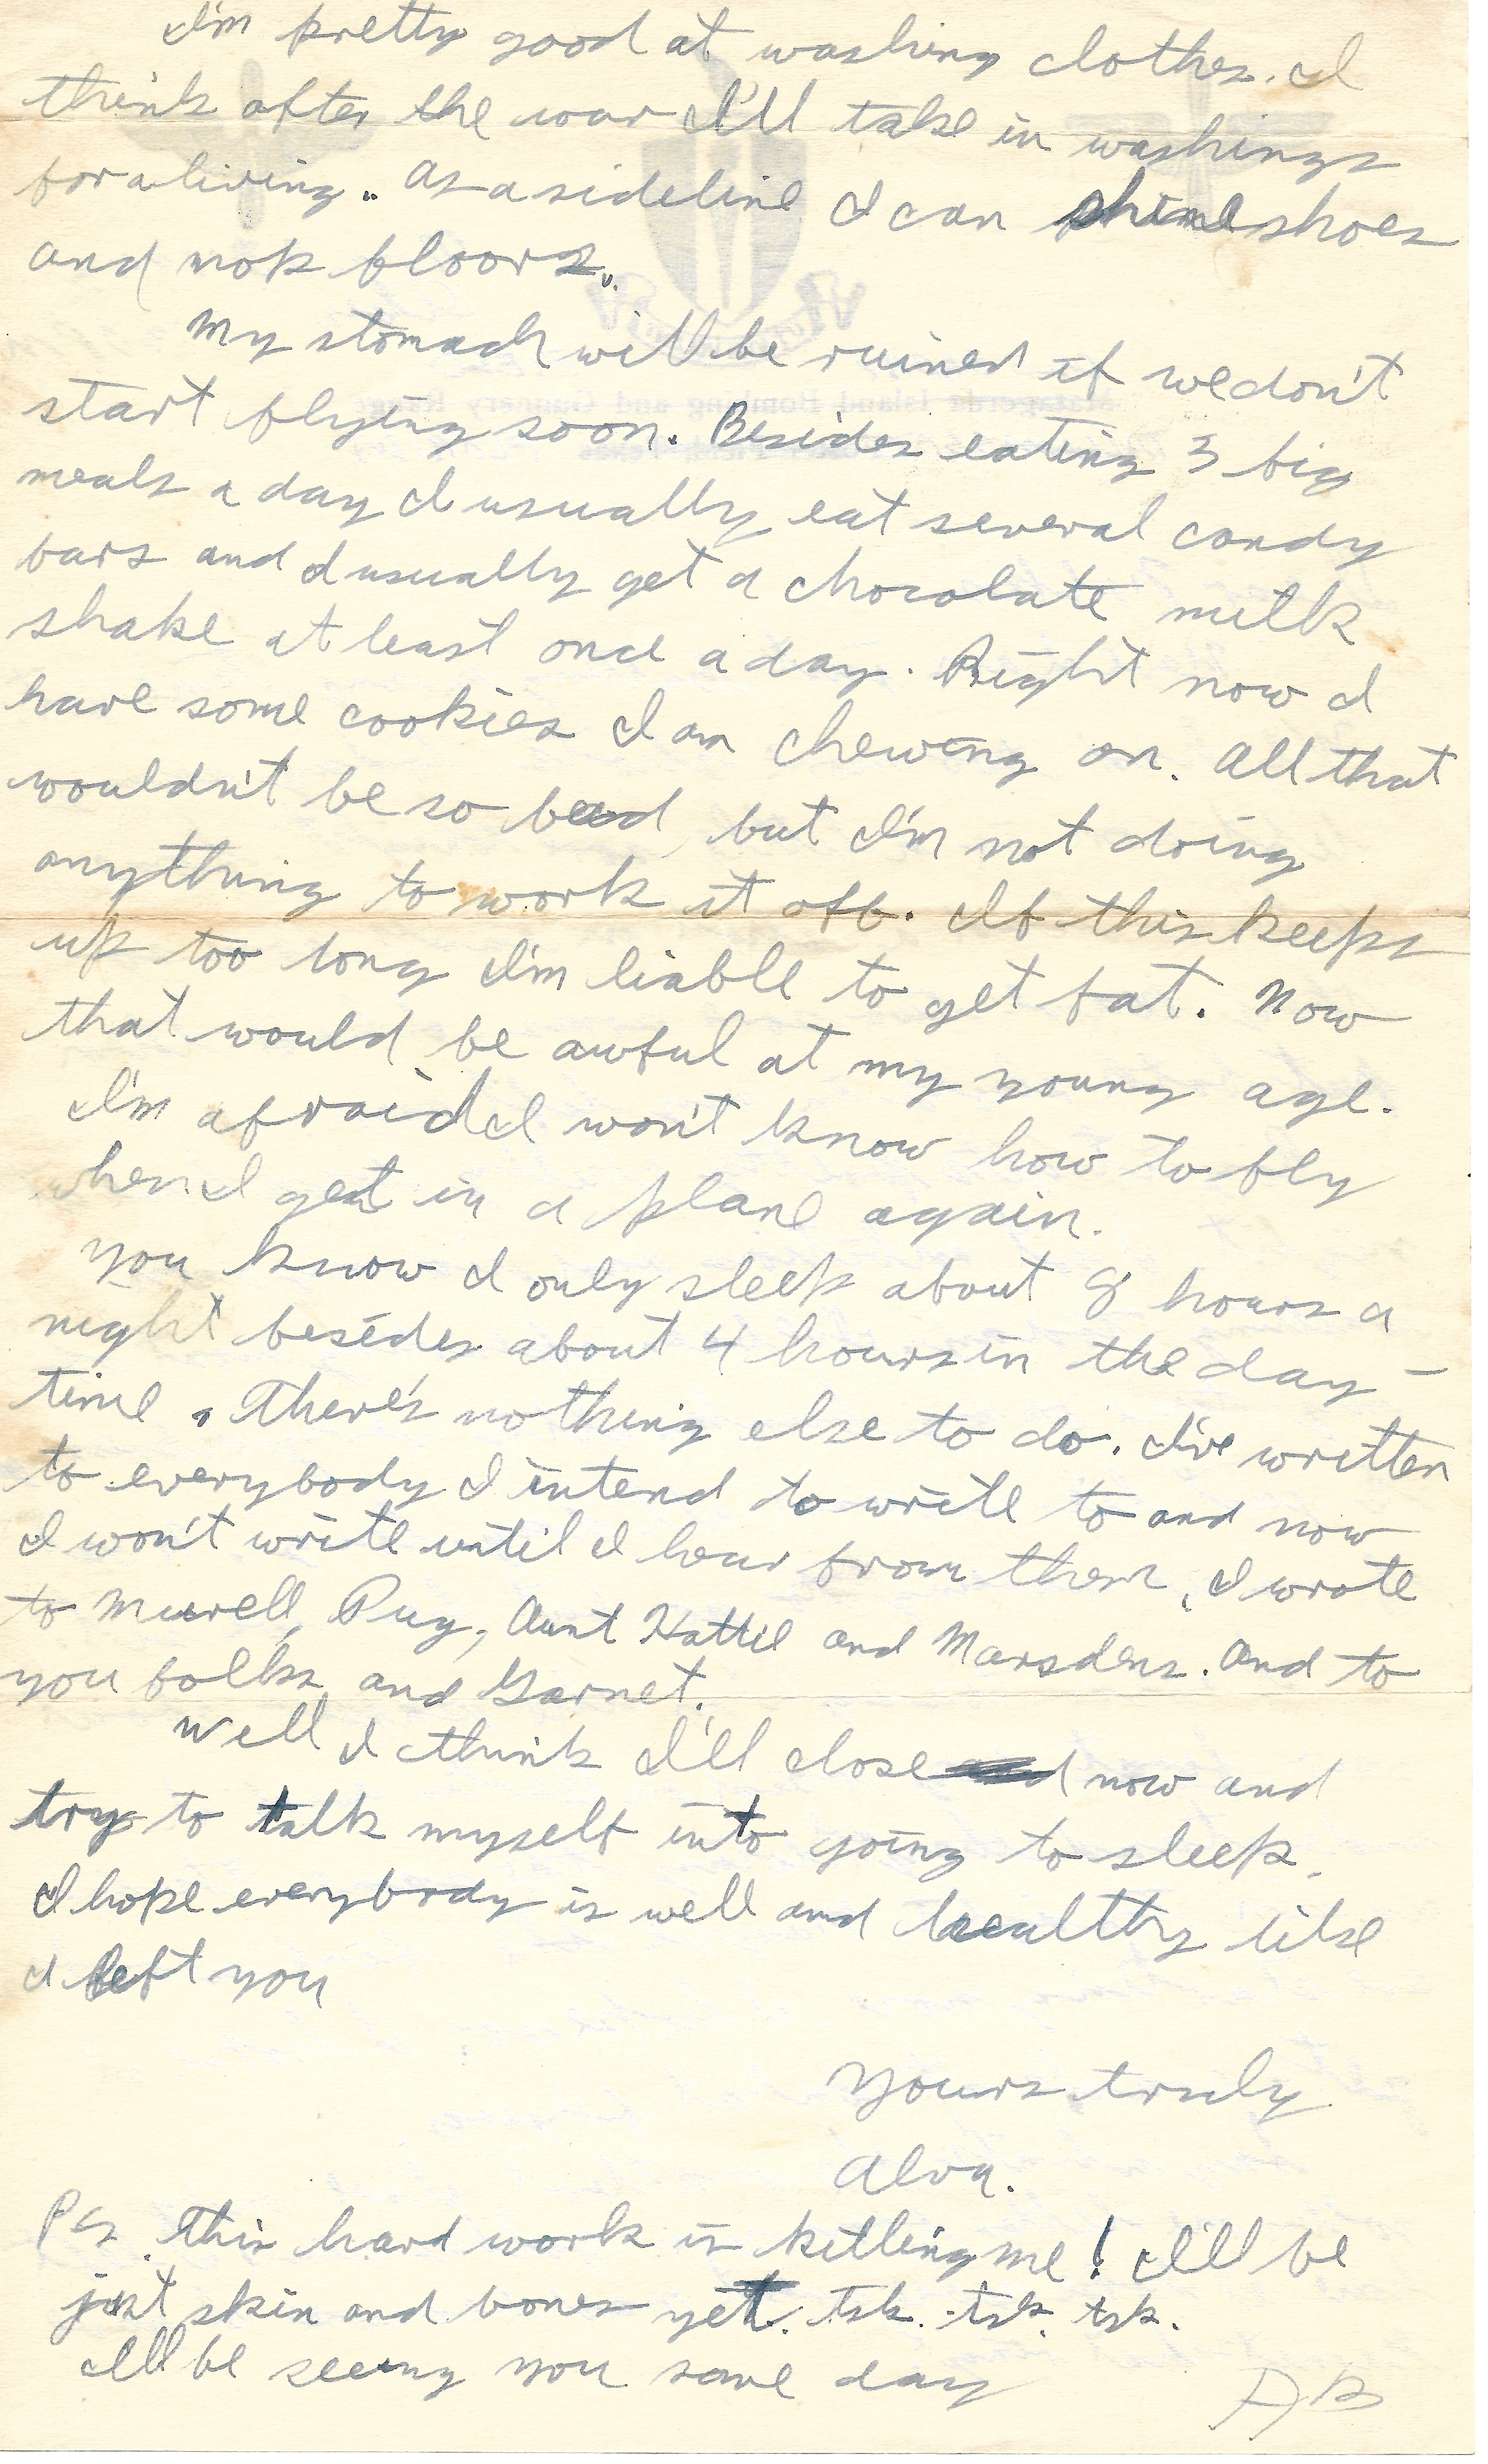 I'm pretty good at washing clothes. I
think after the war I'll take in washings
for a living. As a sideline I can shine shoes
and mop floors.
My stomach will be ruined if we don't
start flying soon. Besides eating 3 big
meals a day I usually eat several candy
bars and I usually get a chocolate milk
shake at least once a day. Right now I
have some cookies I am chewing on. All that
wouldn't be so bad, but I'm not doing
anything to work it off. If this keeps
up too long I'm liable to get fat. Now
that would be awful at my young age.
I'm afraid I won't know how to fly
when I get in a plane again.
You know I only sleep about 8 hours a
night besides about 4 hours in the day-
time. There's nothing else to do. I've written
to everybody I intend to write to and now
I won't write until I hear from them. I wrote
to Murell, Pug, Aunt Hattie and Marsdens. And to
you folks and Garnet.
Well I think I'll close now and
try to talk myself into going to sleep.
I hope everybody is well and healthy like
I left you
Yours truly
Alva.
Ps. This hard work is killing me! I'll be
just skin and bones yet. Tsk. tsk. tsk.
I'll be seeing you some day
AB
Matagorda Island Bombing and Gunnery Range